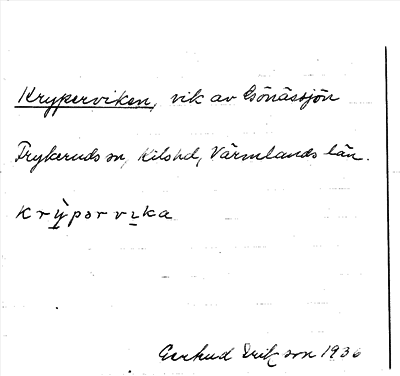 Kryperviken, vik av Gönässjön
Frykeruds sn, Kils hd, Värmlands län.
krỳpərvika
Gertrud Erikson 1936